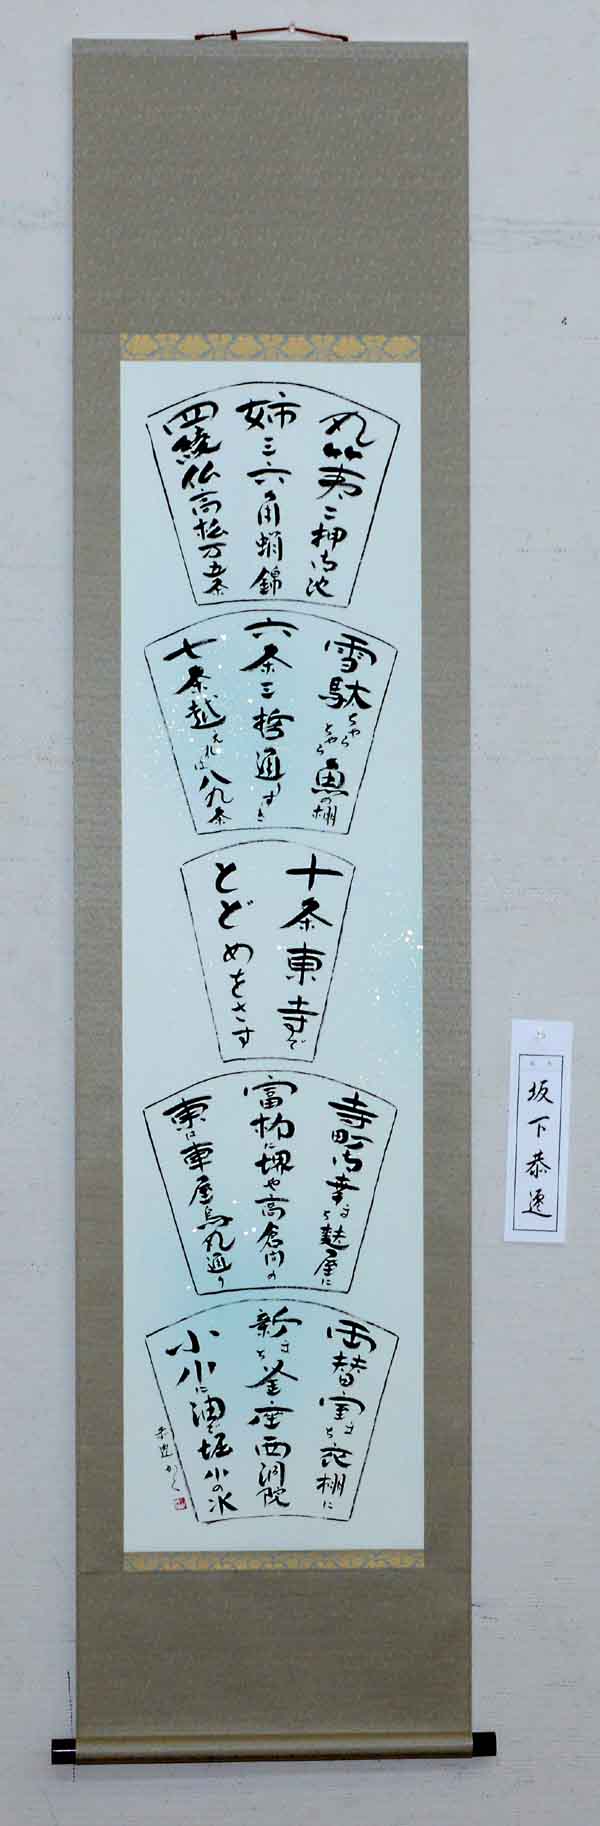 丸竹夷二押御池
姉三六角蛸錦
四綾仏高松万五条
雪駄ちゃらちゃら魚の棚
六条三哲通りすぎ
七条越えれば八九条
十条東寺で
とどめをさす
寺町御幸まち麩屋に
富柳に堺や高倉間の
東は車屋烏丸通り
両替室まち衣棚に
新まち釜座西洞院
小川に油で堀小の水
恭邁かく
坂下恭邁